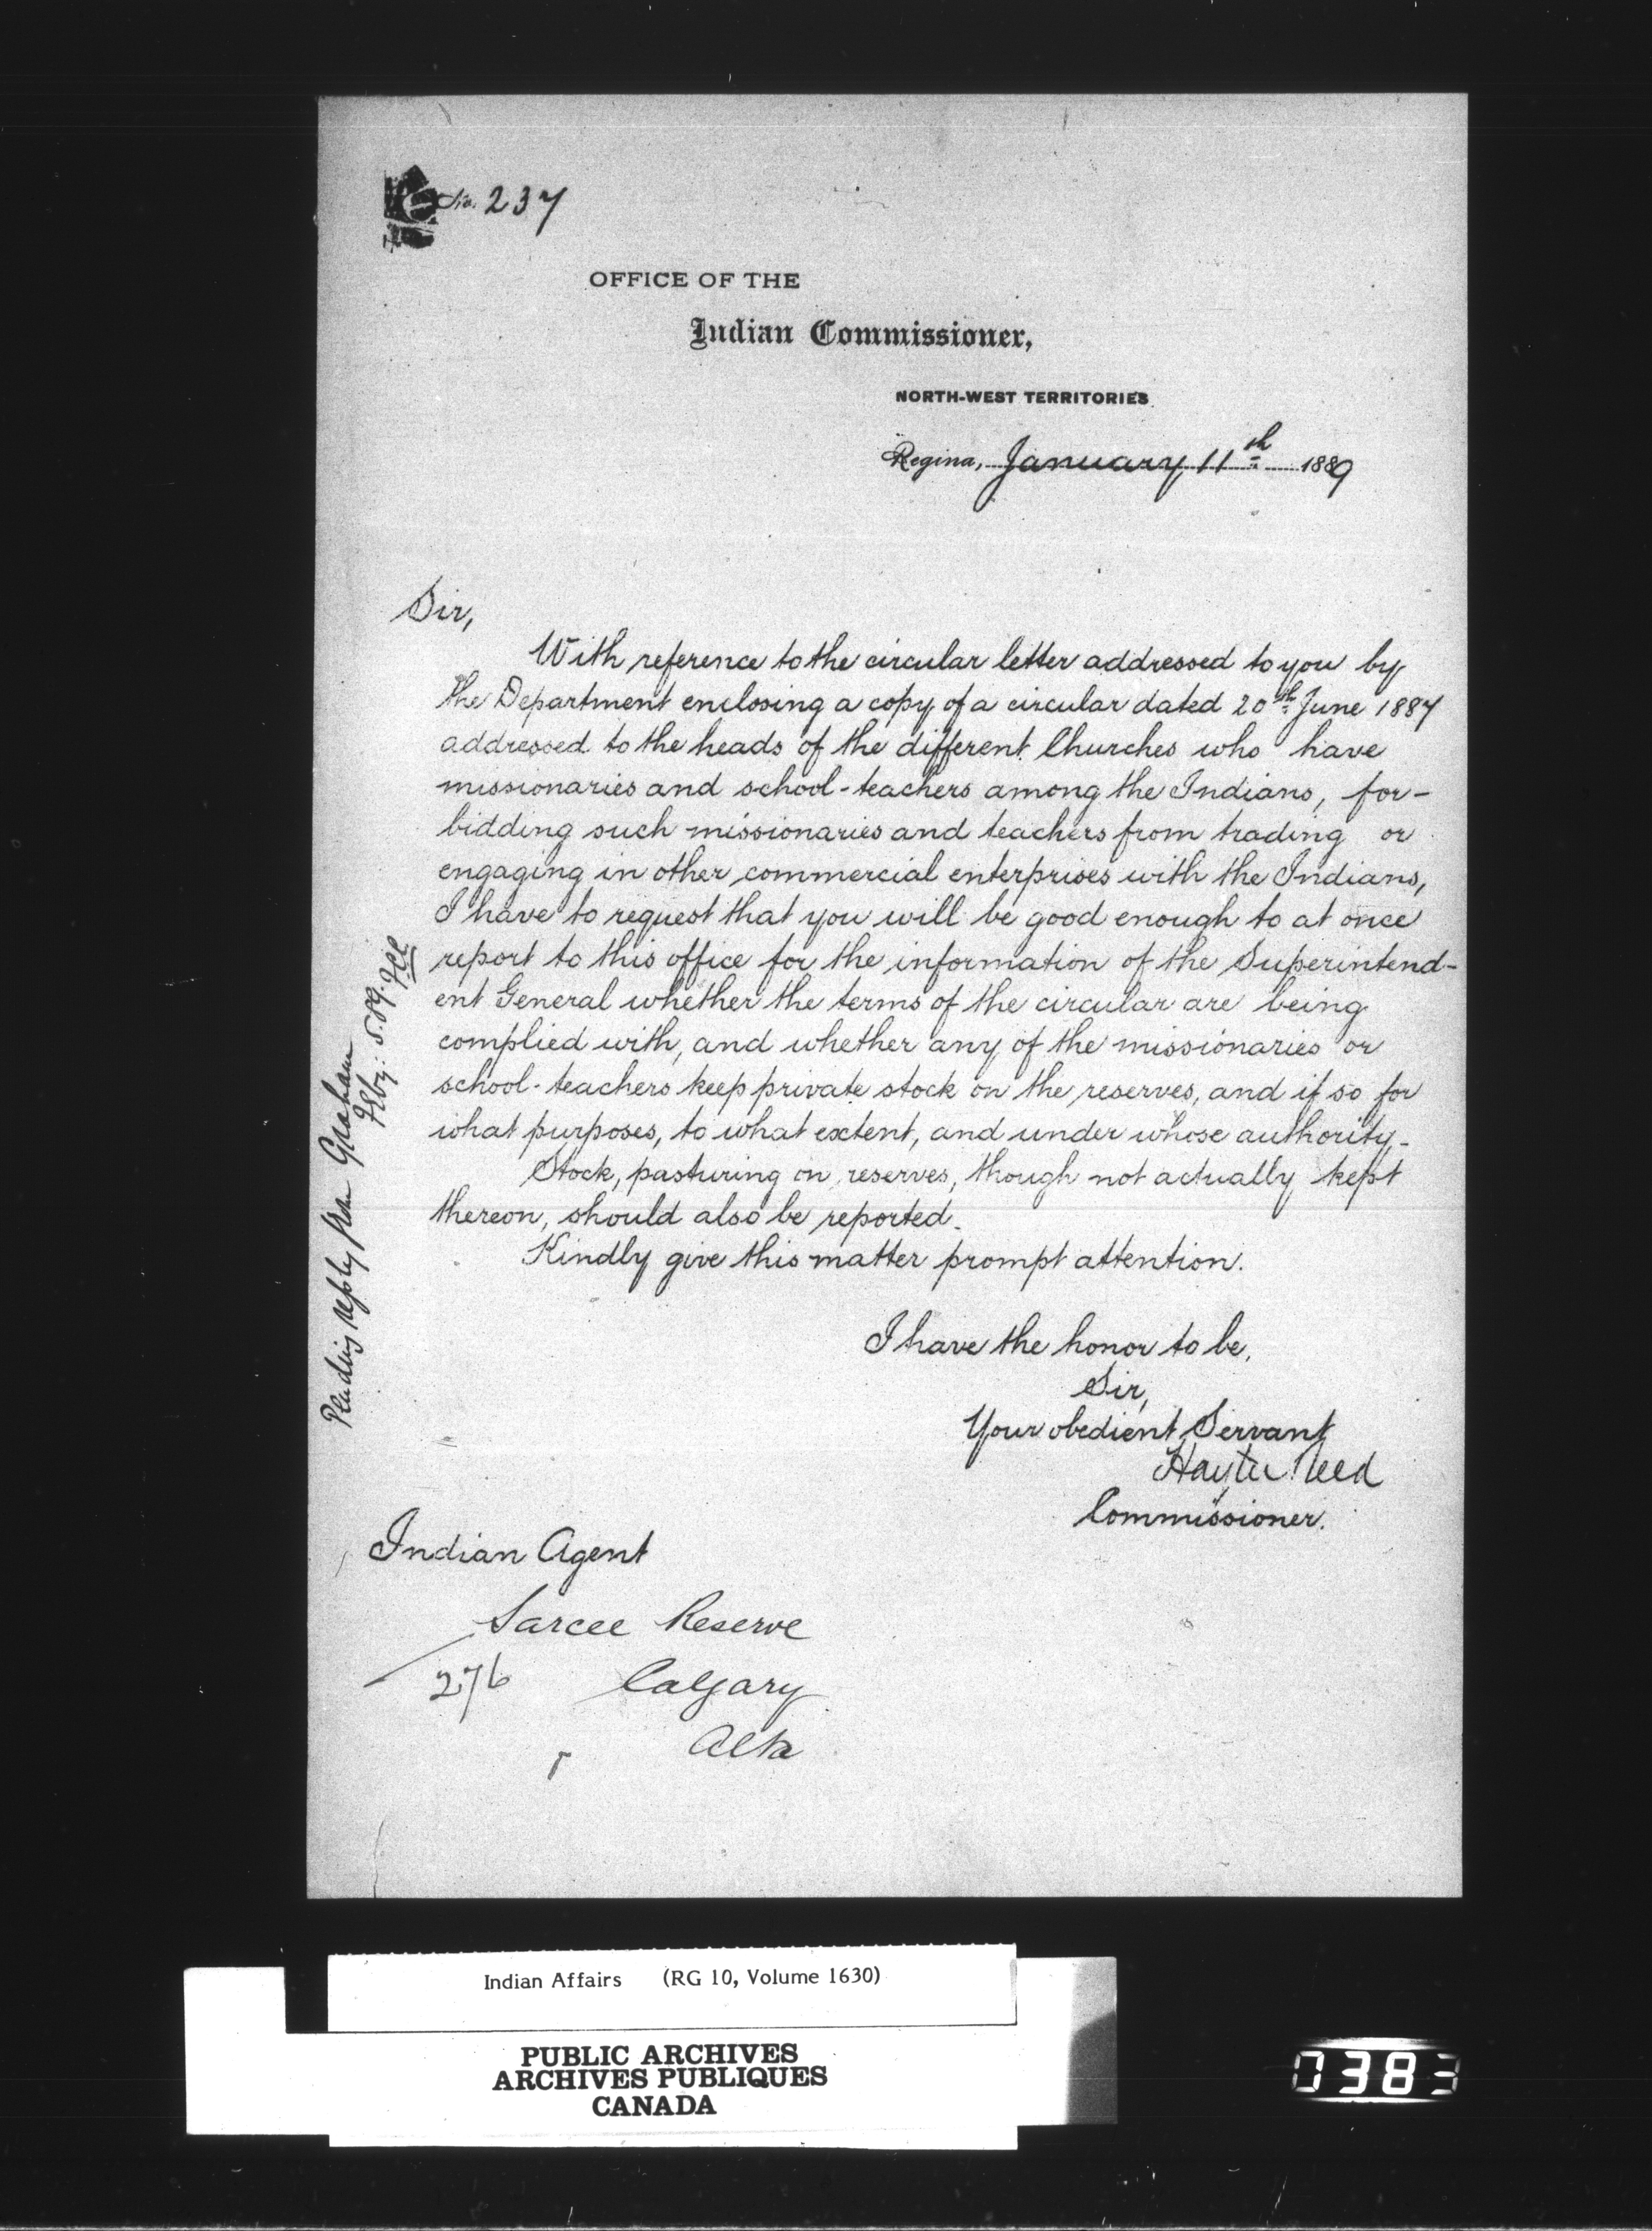 No. 237
OFFICE OF THE
Indian Commissioner,
NORTH-WEST TERRITORIES
Regina, January 11th 1889
Sir,
With reference to the circular letter addressed to you by
the Department enclosing a copy of a circular dated 20th June 1887
addressed to the heads of the different Churches who have
missionaries and school-teachers among the Indians, for-
bidding such missionaries and teachers from trading or
engaging in other commercial enterprises with the Indians,
I have to request that you will be good enough to at once
report to this office for the information of the Superintend-
ent General whether the terms of the circular are being
complied with, and whether any of the missionaries or
school-teachers keep private stock on the reserves, and if so for
what purposes, to what extent, and under whose authority.
Stock, pasturing on reserves, though not actually kept
thereon, should also be reported.
Kindly give this matter prompt attention.
I have the honor to be,
Sir,
Your obedient Servant
Hayter Reed
Commissioner.
Indian Agent
Sarcee Reserve
276 Calgary
Alta
Pending reply from Graham
Feby: 5.89.
Indian Affairs (RG 10, Volume 1630)
PUBLIC ARCHIVES
ARCHIVES PUBLIQUES
CANADA
0383